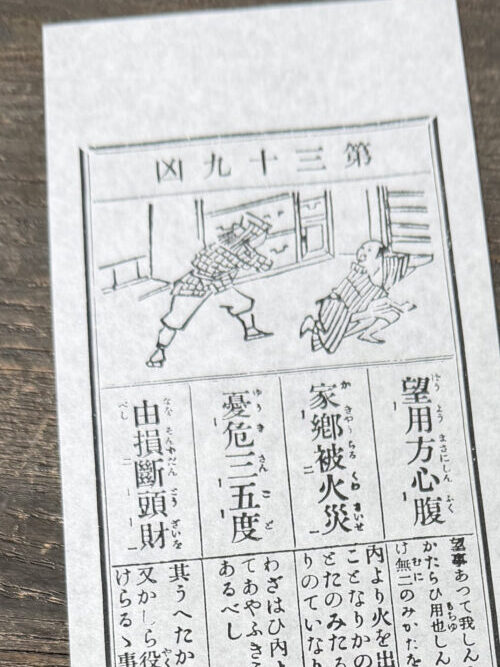 第三十九凶
望用方心腹
家鄉被火災
憂危三五度
由損斷頭財
望事あつて我しん
かたらひ用也しん
け無二のみかたを
内より火を出
ことなりかの
とたのみたる
りのていなり
わざはひ内よ
てあやふき
あるべし
其うへたか
又かしら役
けらるゝ事